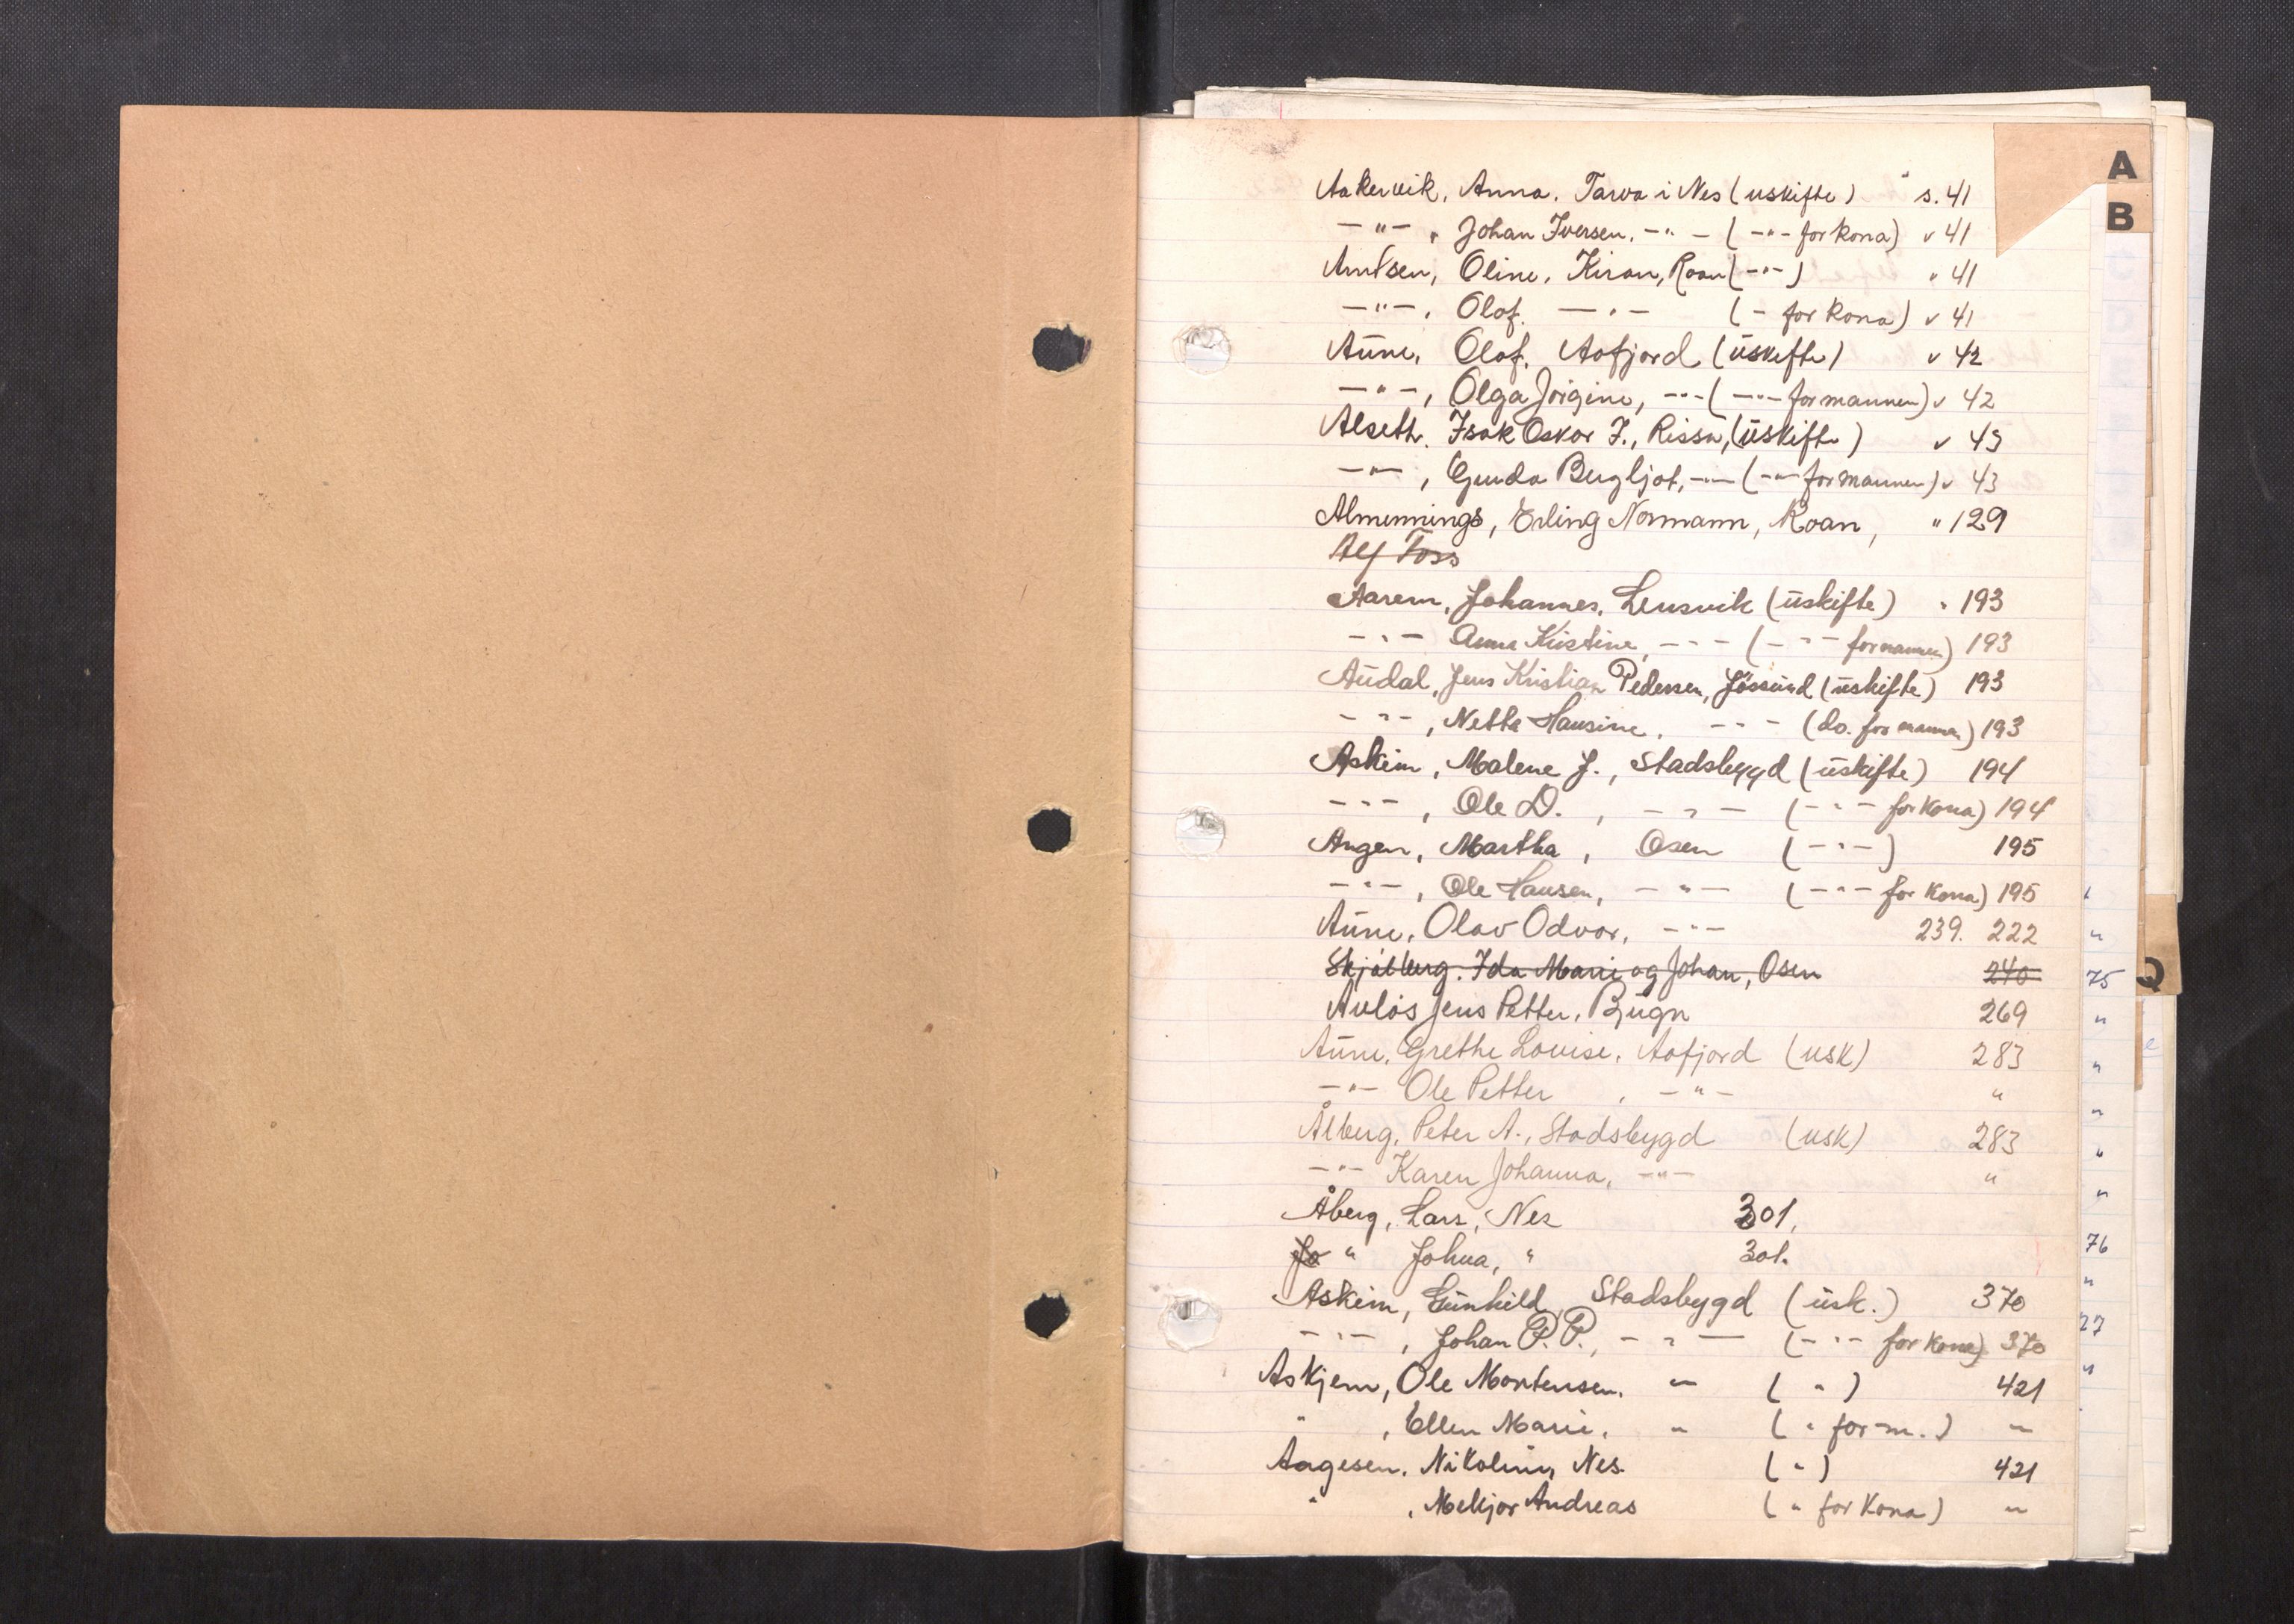 Aakervik, Anna. Tarva i Nes (uskifte) " s. 41
—"— , Johan Iversen. —"— ( —"— for kona) v 41
Arntsen, Oline. Kiran, Roan (—"—) " 41
—"— , Olof. —"— ( — for kona) v 41
Aune, Olof. Aafjord (uskifte) v 42
—"— , Olga Jørgine, —"— (—"— for mannen) v 42
Alseth. Isak Oskar J., Rissa, (uskifte) v 43
—"— , Gunda Bergljot, —"— (—"— for mannen) v 43
Almennings, Erling Normann, Roan, " 129
Alf Foss
Aarem, Johannes, Lensvik (uskifte) " 193
—"— Anna Kristine, —"— (—"— for mannen) 193
Audal, Jens Kristian Pedersen, Jössund (uskifte) 193
—"— , Netta Hansine, —"— (do. for mannen) 193
Askim, Malene J., Stadsbygd (uskifte) 194
—"— , Ole D. , —"— (—"— for kona) 194
Angen, Martha, Osen (—"—) 195
—"— , Ole Hansen, —"— (—"— for kona) 195
Aune, Olav Odvar, —"— 239. 222
Skjælberg. Ida Marie og Johan, Osen 240
Avlös Jens Petter, Bjugn 269
Aune, Grethe Lovise, Aafjord (usk) 283
—"— Ole Petter , —"— "
Ålberg, Peter A., Stadsbygd (usk) 283
—"— Karen Johanna, —"— "
Åberg, Lars, Nes 301,
Jo " Johna, " 301.
Askim, Gunhild, Stadsbygd (usk.) 370
—"— , Johan P. P., —"— (—"— for kona) 370
Askjem, Ole Mortensen. " ( " ) 421
" , Ellen Marie, " ( " for m.) "
Aagesen, Nikoline, Nes. ( " ) 421
" , Mekjor Andreas ( " for kona) "
A
B
Q
75
76
77